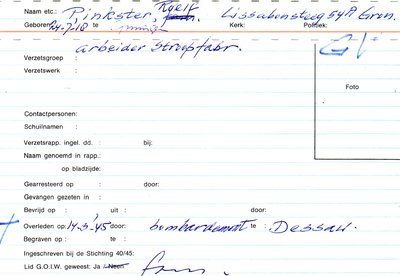 Naam etc.: Pinkster, Roelf. Lissabonsteeg 54A Gron.
Geboren: 24-7-18 te Kerk: Politiek:
arbeider stroopfabr.
Verzetsgroep :
Verzetswerk :
Foto
Contactpersonen:
Schuilnaam :
Verzetsrapp. ingel. dd. : bij:
Naam genoemd in rapp.:
op bladzijde:
Gearresteerd op : door:
Gevangen gezeten in :
Bevrijd op : uit : door:
Overleden op: 14-3-'45 door: bombardement te : Dessau.
Begraven op : te :
Ingeschreven bij de Stichting 40/45:
Lid G.O.I.W. geweest: Ja / Neen